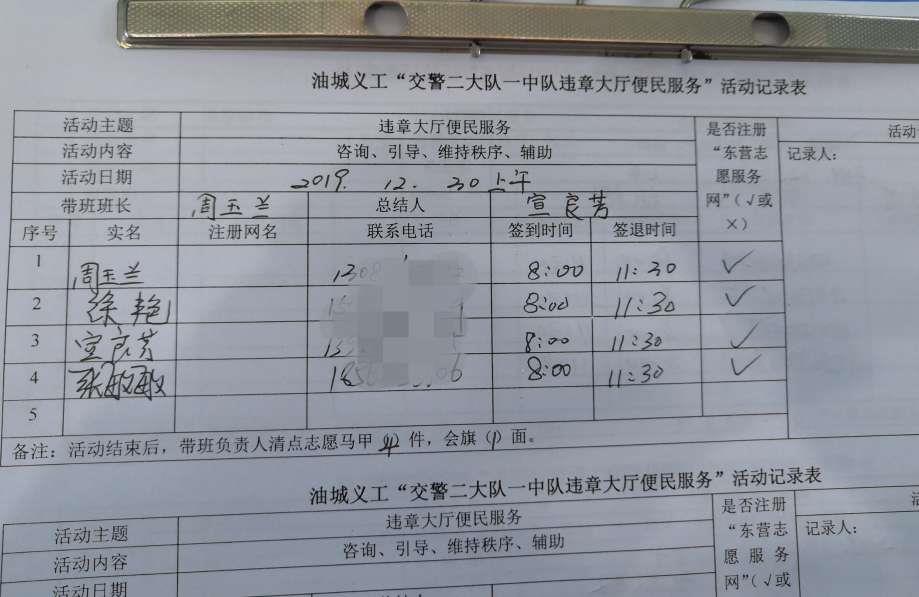 油城义工“交警二大队一中队违章大厅便民服务”活动记录表
活动主题 违章大厅便民服务 是否注册“东营志愿服务网”(√或×) 活动
活动内容 咨询、引导、维持秩序、辅助 记录人:
活动日期 2019. 12. 30上午
带班班长 周玉兰 总结人 宣良芳
序号 实名 注册网名 联系电话 签到时间 签退时间
1 周玉兰 8:00 11:30 √
2 徐艳 8:00 11:30 √
3 宣良芳 8:00 11:30 √
4 张敏敏 8:00 11:30 √
5
备注:活动结束后,带班负责人清点志愿马甲 件,会旗(1)面。
油城义工“交警二大队一中队违章大厅便民服务”活动记录表
活动主题 违章大厅便民服务 是否注册“东营志愿服务网”(√或
活动内容 咨询、引导、维持秩序、辅助 记录人:
活动日期